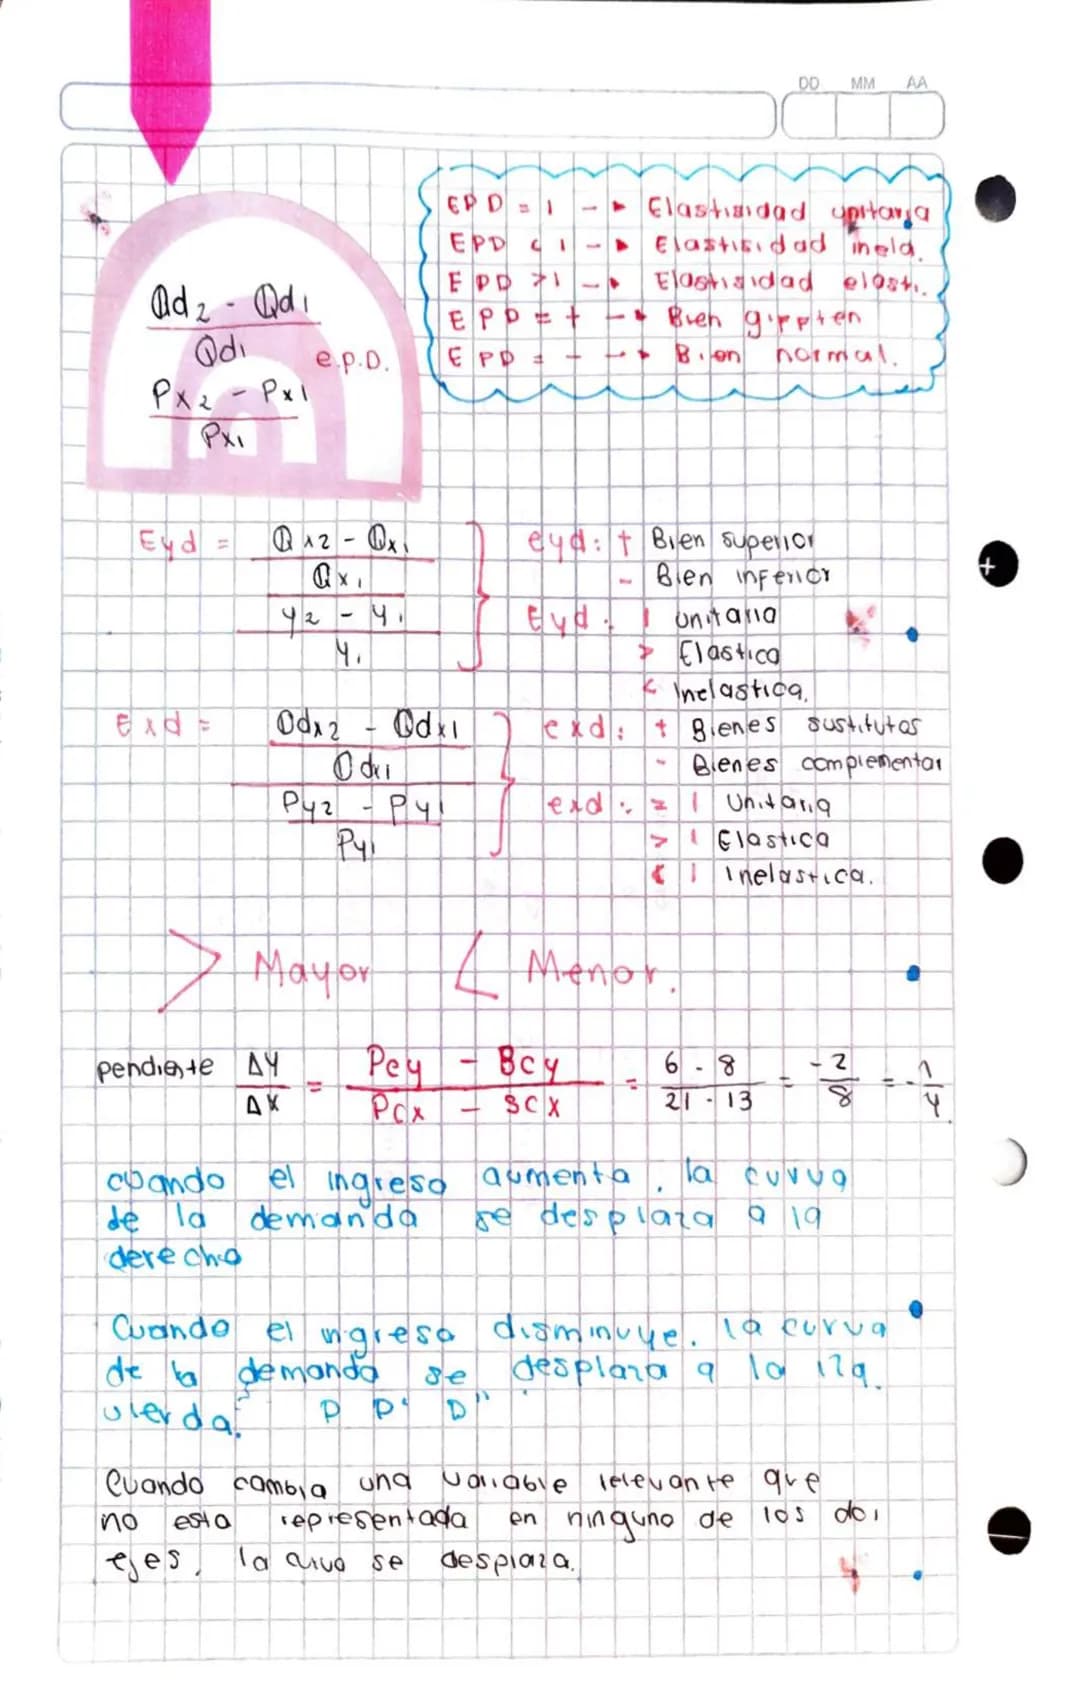 DD MM AA
EPD = 1 -► Elastisidad unitaria
EPD < 1 -► Elastisidad inela.
EPD >1 -► Elastisidad elasti.
EPD = + -► Bien gippten
EPD = - -► Bien normal.
Qd2 - Qd1
Qd1
e.p.D.
Px2 - Px1
Px1
Eyd = Qx2 - Qx1
Qx1
y2 - y1
y1
eyd: + Bien superior
- Bien inferior
Eyd: 1 unitaria
> Elastica
< Inelastica.
Exd = Qdx2 - Qdx1
Qdx1
Py2 - Py1
Py1
exd: + Bienes sustitutos
- Bienes complementar
exd: = 1 Unitaria
> 1 Elastica
< 1 Inelastica.
> Mayor < Menor.
pendiente ΔY = Pcy - Bcy = 6 - 8 = -2 = -1
ΔX PCx - BCX 21 - 13 8 4
cuando el ingreso aumenta, la curva
de la demanda se desplaza a la
derecha
Cuando el ingreso disminuye. la curva
de la demanda se desplaza a la izq.
uierda. D D' D"
Cuando cambia una variable relevante que
no esta representada en ninguno de los dos
ejes, la curva se desplaza.